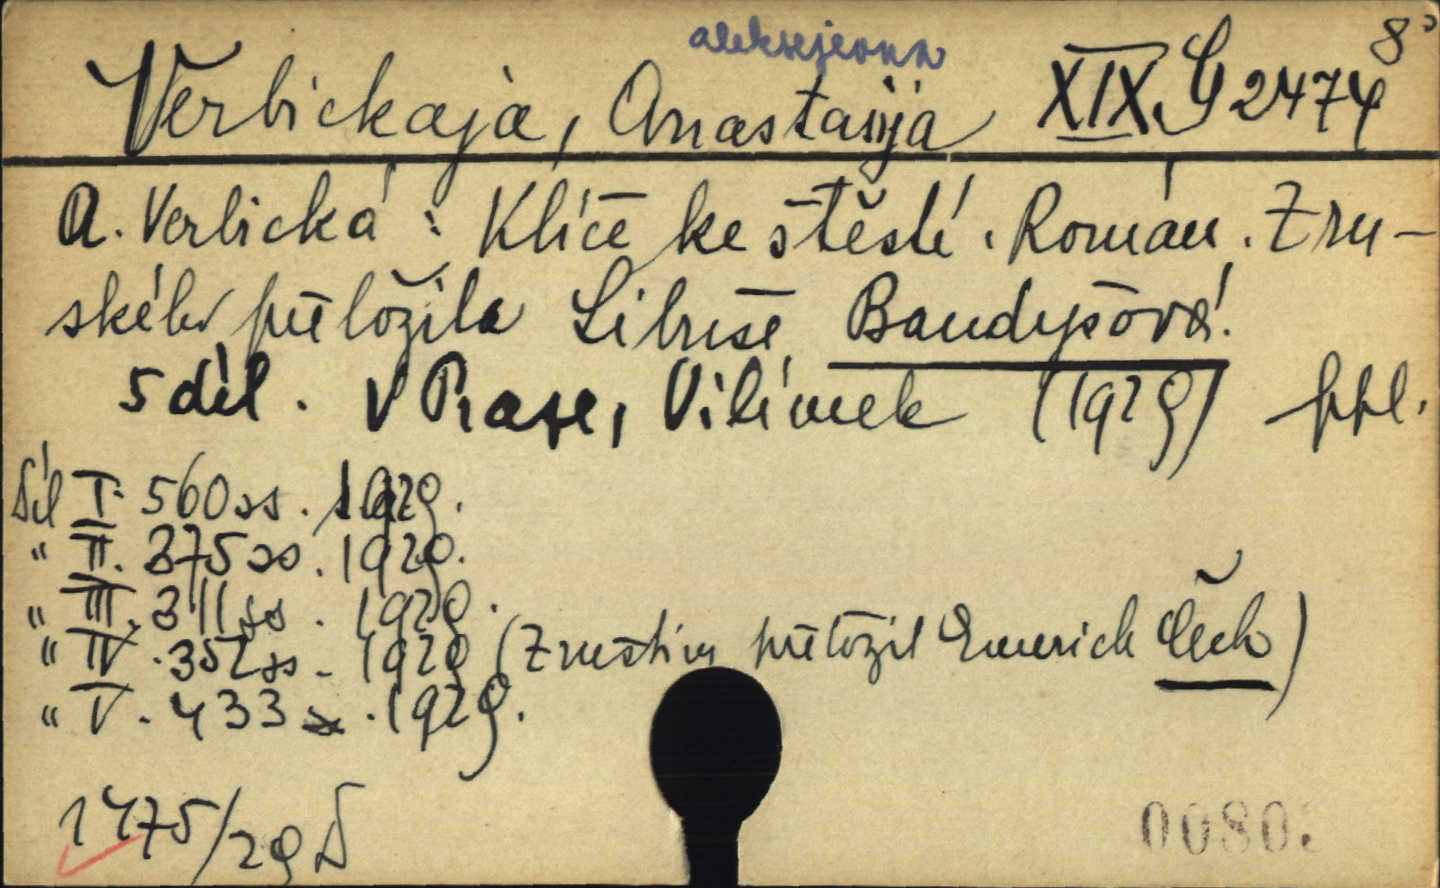 aleksejevna
8°
Verbickaja, Anastasija XIX.G 2474
A. Verbická: Klíče ke štěstí. Román. Z ru-
ského přeložila Libuše Baudyšová.
5 díl. V Praze, Vilímek (1929) ppl.
Díl I. 560 ss. 1929.
" II. 375 ss. 1929.
" III. 311 ss. 1929.
" IV. 352 ss. 1929 (Z ruštiny přeložil Emerich Čech)
" V. 433 ss. 1929.
1475/29 D
0080